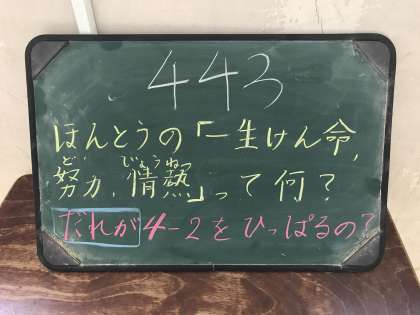 443
ほんとうの「一生けん命,
ど じょうねつ
努力,情熱」って何?
だれが4-2をひっぱるの?